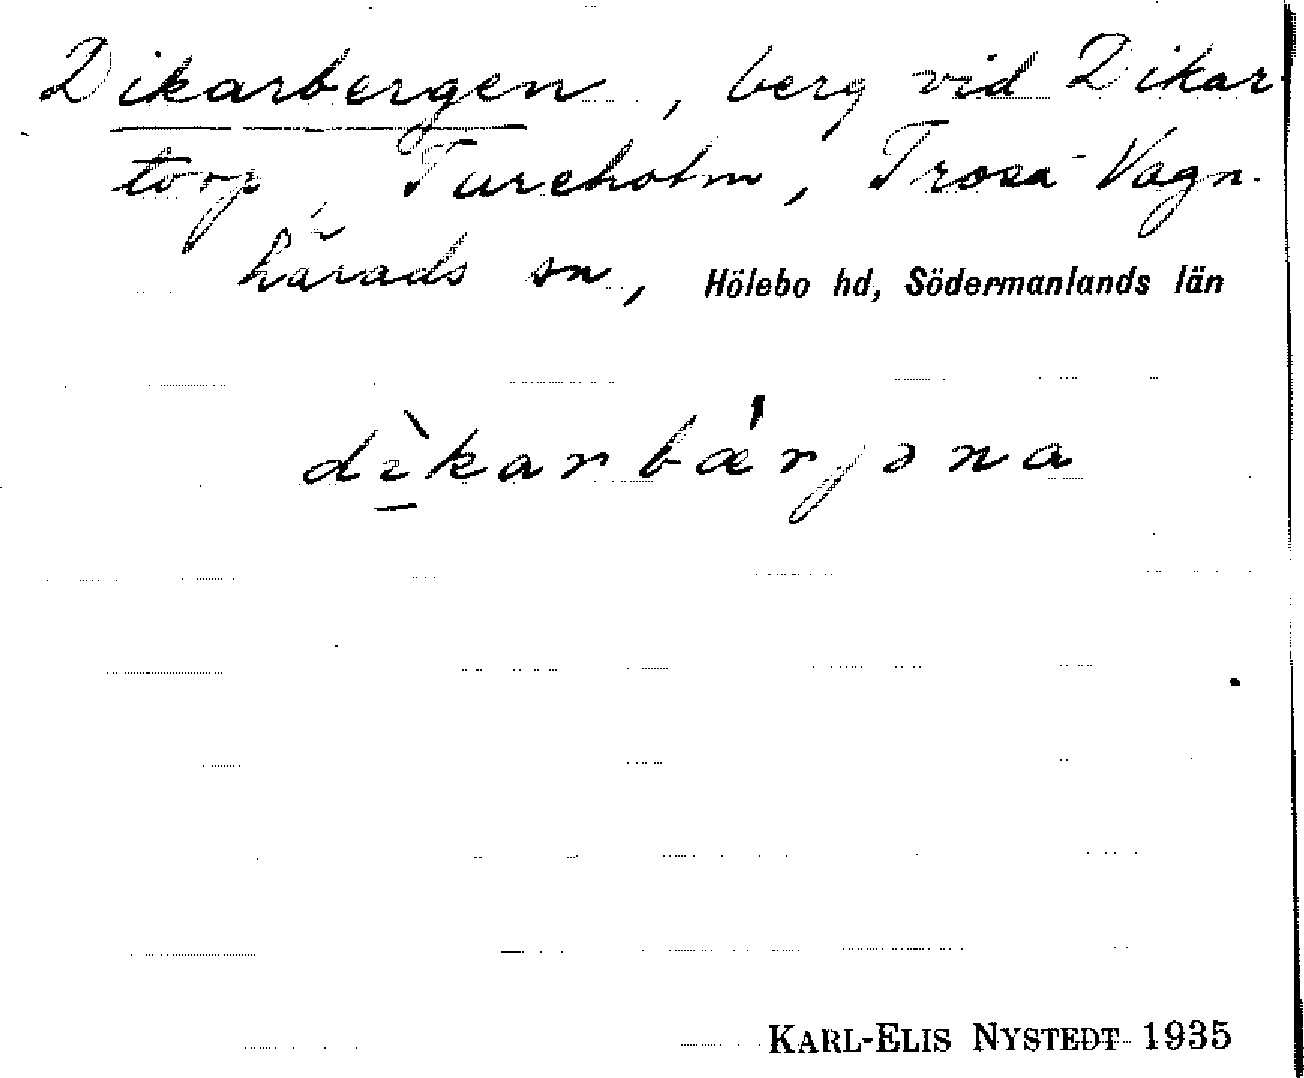 Dikarbergen, berg vid Dikar-
torp, Tureholm, Trosa-Vagn-
härads sn, Hölebo hd, Södermanlands län
dìkarbǽrjəna
KARL-ELIS NYSTEDT 1935